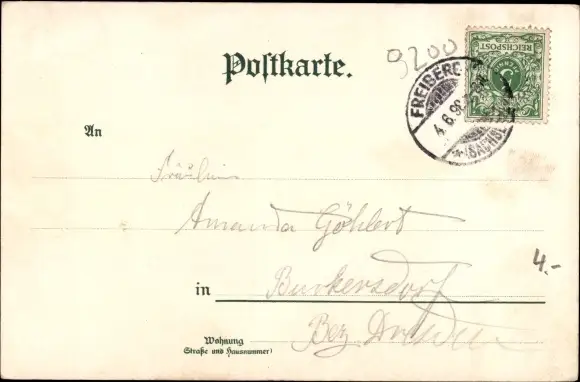 9200
REICHSPOST
Postkarte.
FREIBERG
4.6.98
(SACHSEN)
An
Fräulein
Amanda Göhlert
4.-
in Burkersdorf
Wohnung
(Straße und Hausnummer)
Bez. Dresden